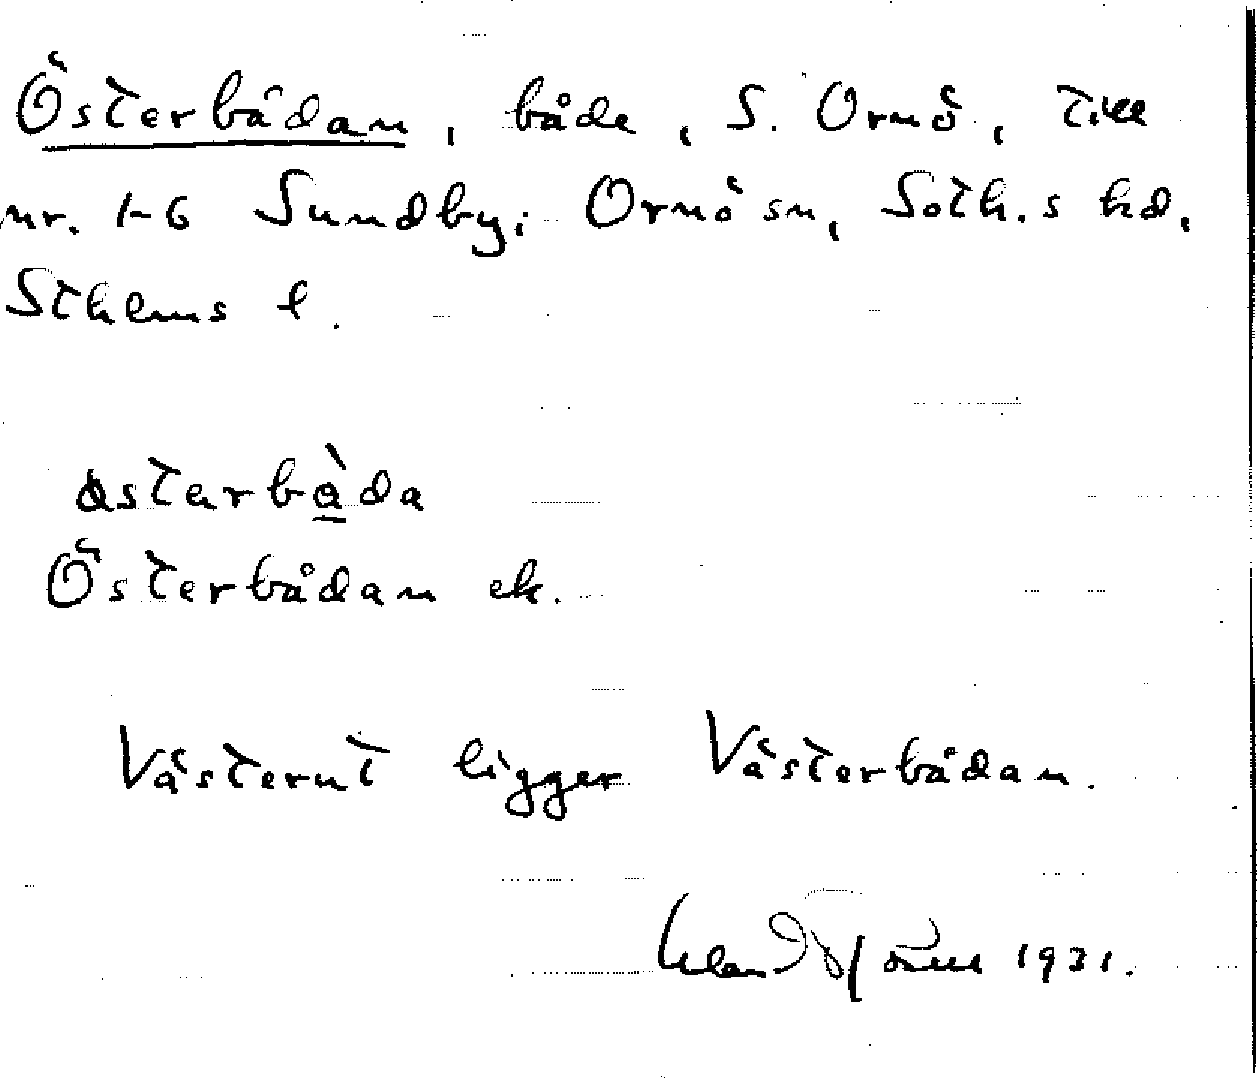 Österbådan, både, S. Ornö, till
nr. 1-6 Sundby; Ornö sn, Soth.s hd,
Sthlms l.
østerbàda
Österbådan ek.
Västerut ligger Västerbådan.
1931.